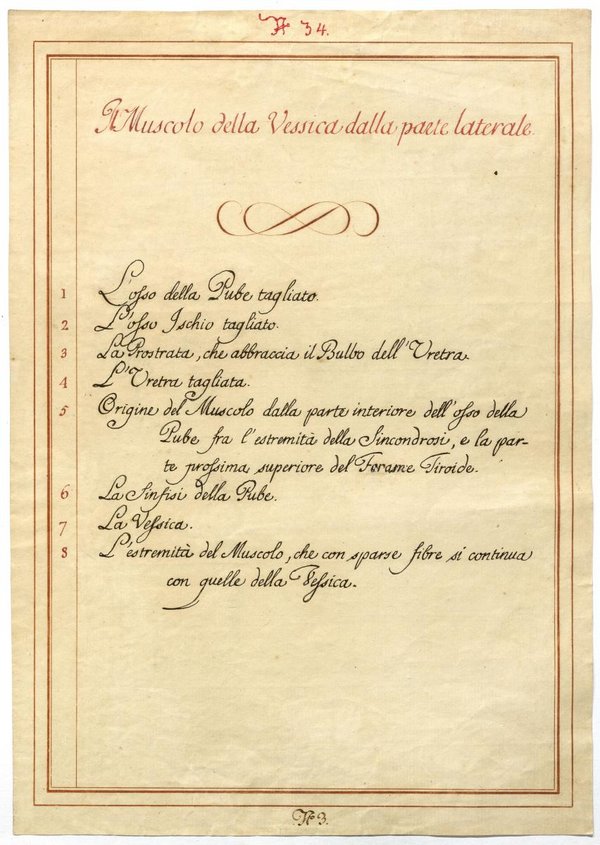 N 34.
Il Muscolo della Vessica dalla parte laterale.
1 L'osso della Pube tagliato.
2 L'osso Ischio tagliato.
3 La Prostrata, che abbraccia il Bulbo dell'Uretra.
4 L'Uretra tagliata.
5 Origine del Muscolo dalla parte interiore dell'osso della
Pube fra l'estremità della Sincondrosi, e la par-
te prossima superiore del Forame Tiroide.
6 La Sinfisi della Pube.
7 La Vessica.
8 L'estremità del Muscolo, che con sparse fibre si continua
con quelle della Vessica.
N 3.